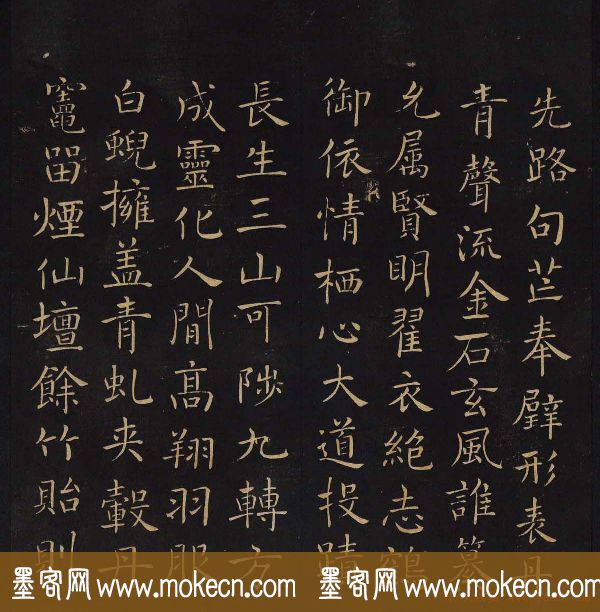 先路句芒奉璧形表丹
青聲流金石玄風誰篡
允属賢明翟衣絶志鶴
御依情栖心大道投蹟
長生三山可陟九轉方
成靈化人閒高翔羽服
白蜺擁盖青虬夹轂丹
竈留煙仙壇餘竹貽則
墨客网 www.mokecn.com 墨客网 www.mokecn.com